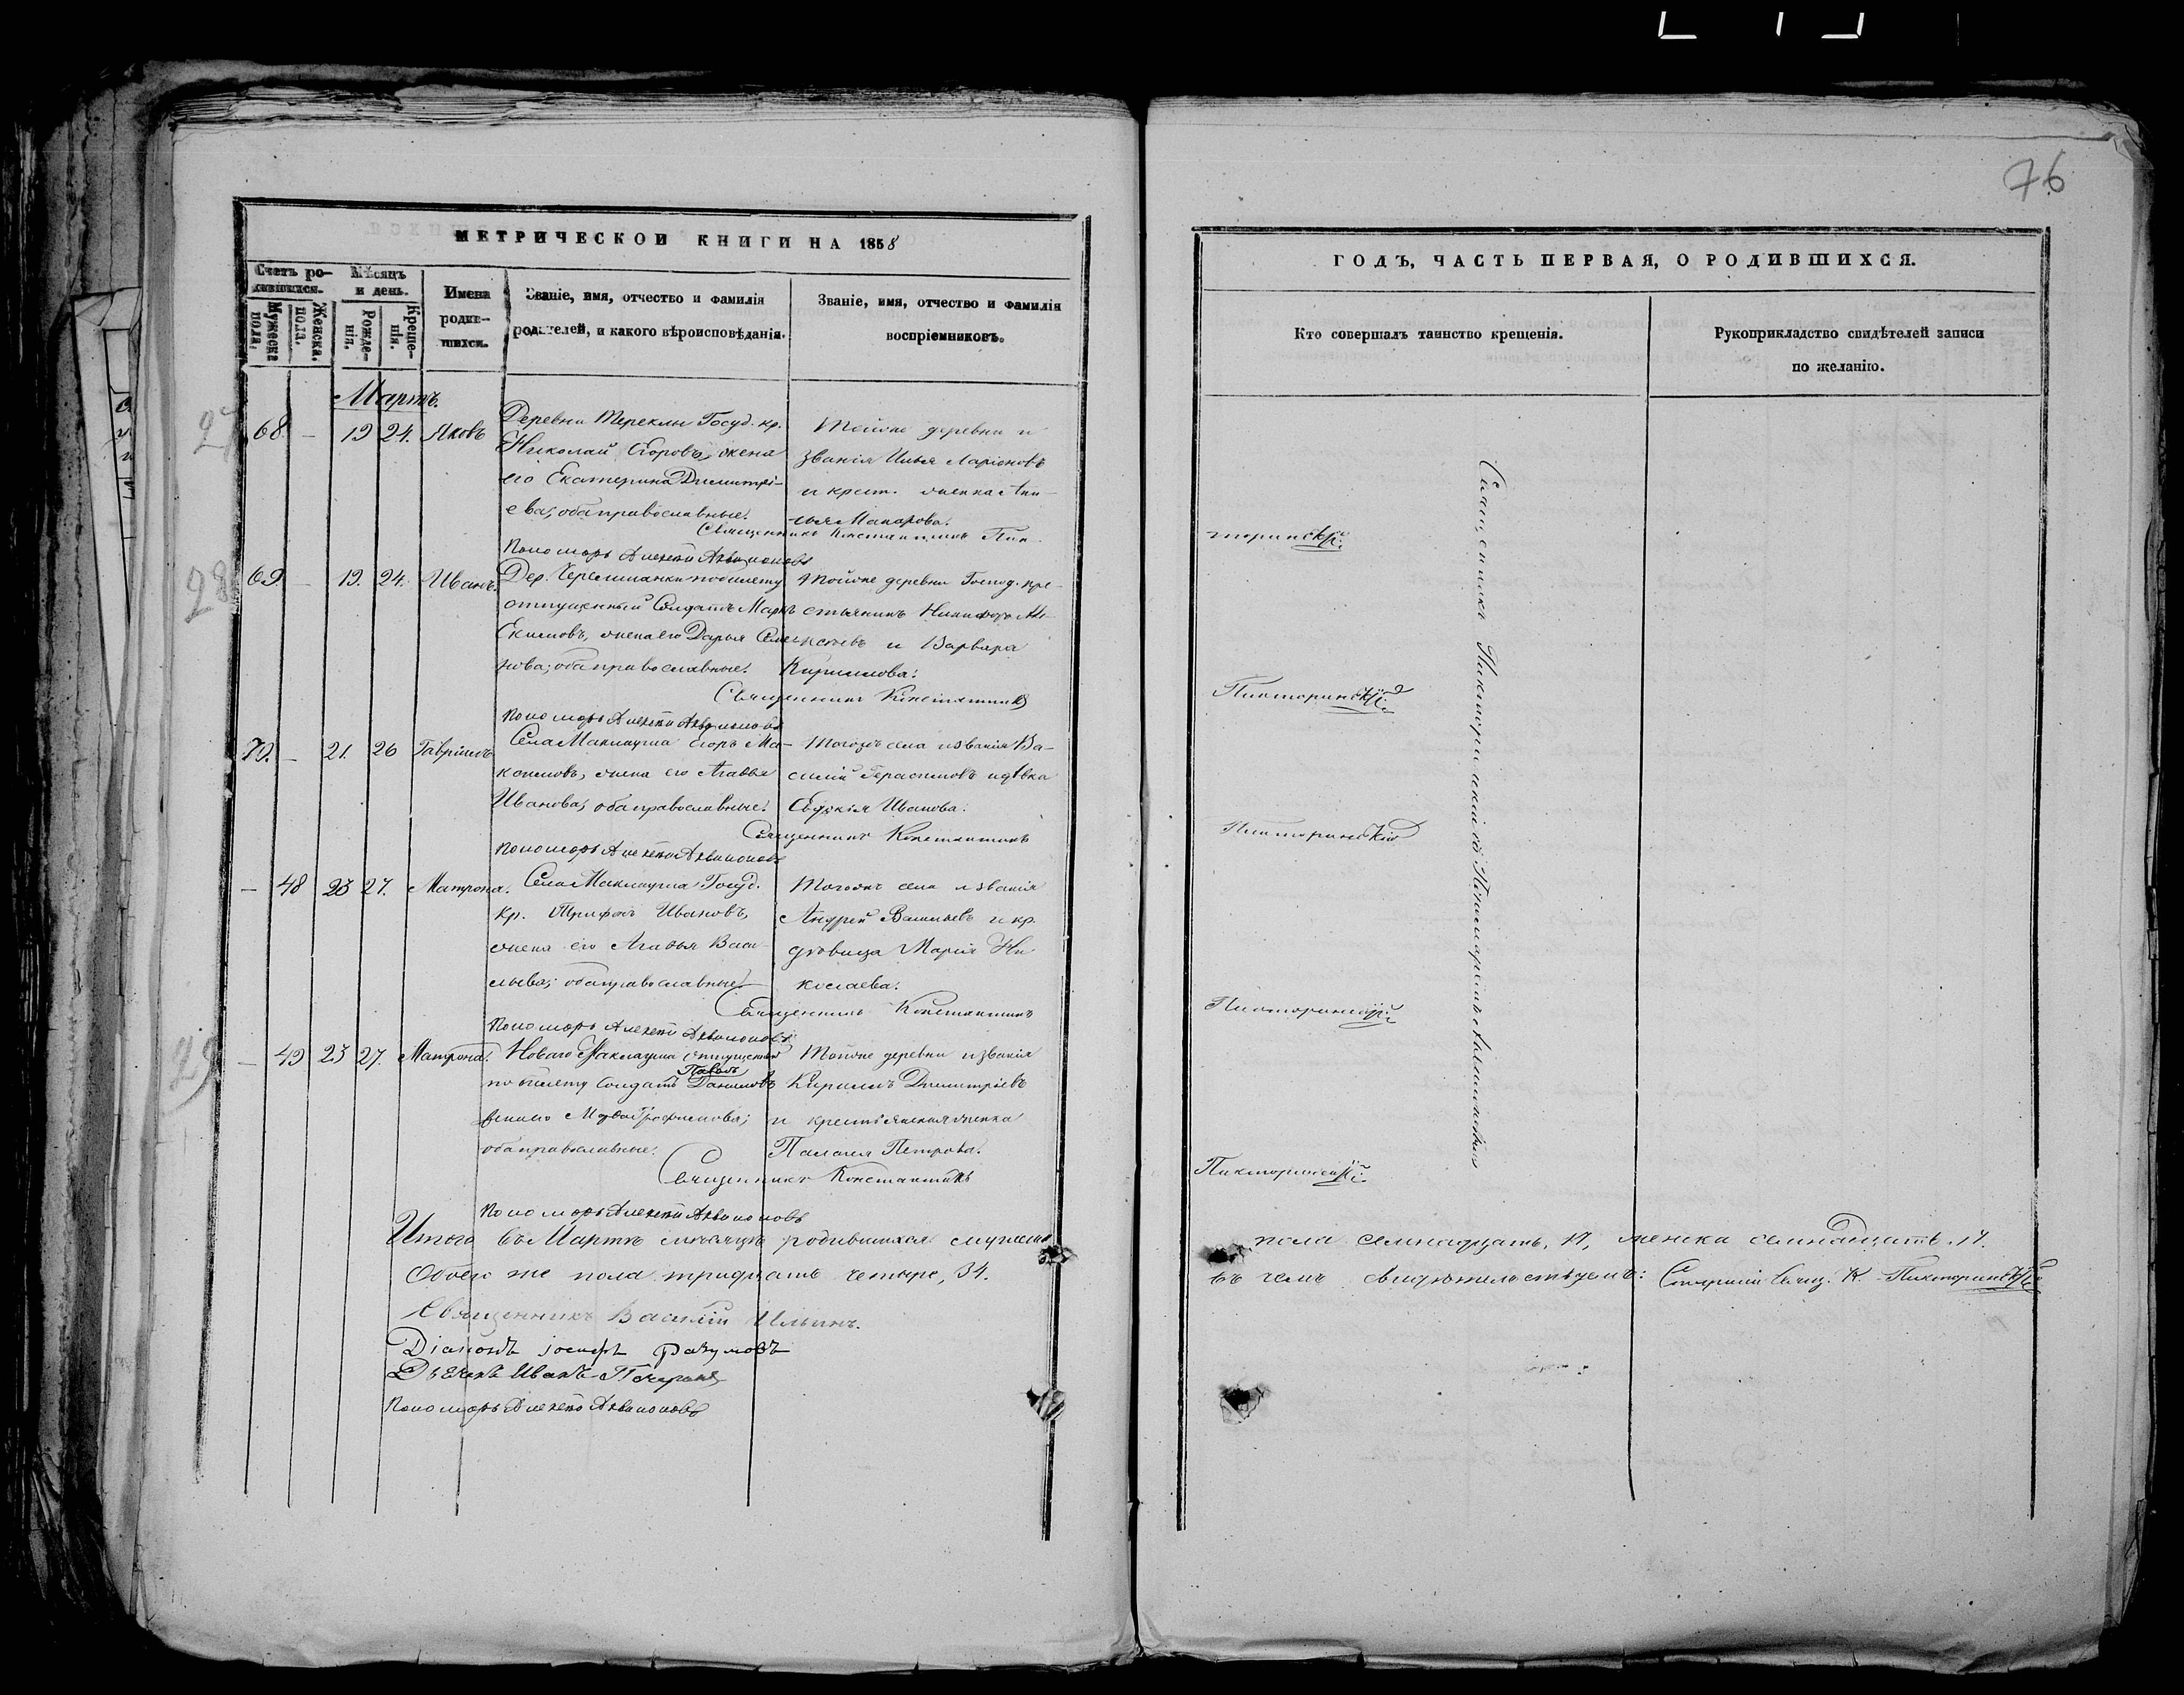 76
МЕТРИЧЕСКОЙ КНИГИ НА 1858
Счетъ ро-
дившихся.
Мужеска
пола.
Женска.
пола.
Мѣсяцъ
и день.
Рожде-
нія.
Креще-
нія.
Имена
родив-
шихся.
Званіе, имя, отчество и фамилія
родителей, и какого вѣроисповѣданія.
Званіе, имя, отчество и фамилія
воспріемниковъ.
Мартъ.
27
68. — 19 24. Яковъ
Деревни Тереклы Госуд. кр.
Николай Егоровъ, жена
его Екатерина Димитрі-
ева; оба православные.
Тойже деревни и
званія Илья Ларіоновъ
и крест. женка
Макарова.
Священникъ Константинъ Пик
Пономарь Алексѣй
28
69. — 19. 24. Иванъ.
Дер. Черемшанки по билету
отпущенный Солдатъ Маркъ
Екимовъ, жена его Дарья Семе
нова; оба православные.
Тойже деревни Госуд. кре-
стьянинъ Никифоръ
и Варвара
Кириллова.
Священникъ Константинъ
Пономарь Алексѣй
70. — 21. 26 Гавріилъ
Села Маклауша Егоръ Ма-
ксимовъ, жена его Агавья
Иванова; оба православные.
Тогожъ села и званія Ва-
силій Герасимовъ и дѣвка
Евдокія Иванова.
Священникъ Константинъ
Пономарь Алексѣй
— 48 23 27. Матрона.
Села Маклауша Госуд.
кр. Трифонъ Ивановъ,
жена его Агавья Васи
льева; оба православные.
Тогожъ села и званія
Андрей Васильевъ и кр.
дѣвица Марія Ни
колаева.
Священникъ Константинъ
Пономарь Алексѣй
29
— 49 23 27. Матрона.
Новаго Маклауша отпущенный
по билету Солдатъ Павелъ Даниловъ
жена его Трофимова;
оба православные.
Тойже деревни и званія
Кириллъ Димитріевъ
и крестьянская женка
Палагея Петрова.
Священникъ Константинъ
Пономарь Алексѣй
Итого въ Мартѣ мѣсяцѣ родившихся мужеска
Обоего же пола тридцать четыре, 34.
Священникъ Василій Ильинъ.
Діаконъ Іосифъ Разумовъ
Дьячекъ Иванъ
Пономарь Алексѣй
ГОДЪ, ЧАСТЬ ПЕРВАЯ, О РОДИВШИХСЯ.
Кто совершалъ таинство крещенія.
Рукоприкладство свидѣтелей записи
по желанію.
торинскій
Пикторинскій
Пикторинскій
Пикторинскій
Пикторинскій
Священникъ Пикторинскій съ Пономаремъ
пола семнадцать, 17, женска семнадцать 17.
въ чемъ свидѣтельствуемъ: Старшій Свящ. К. Пикторинскій